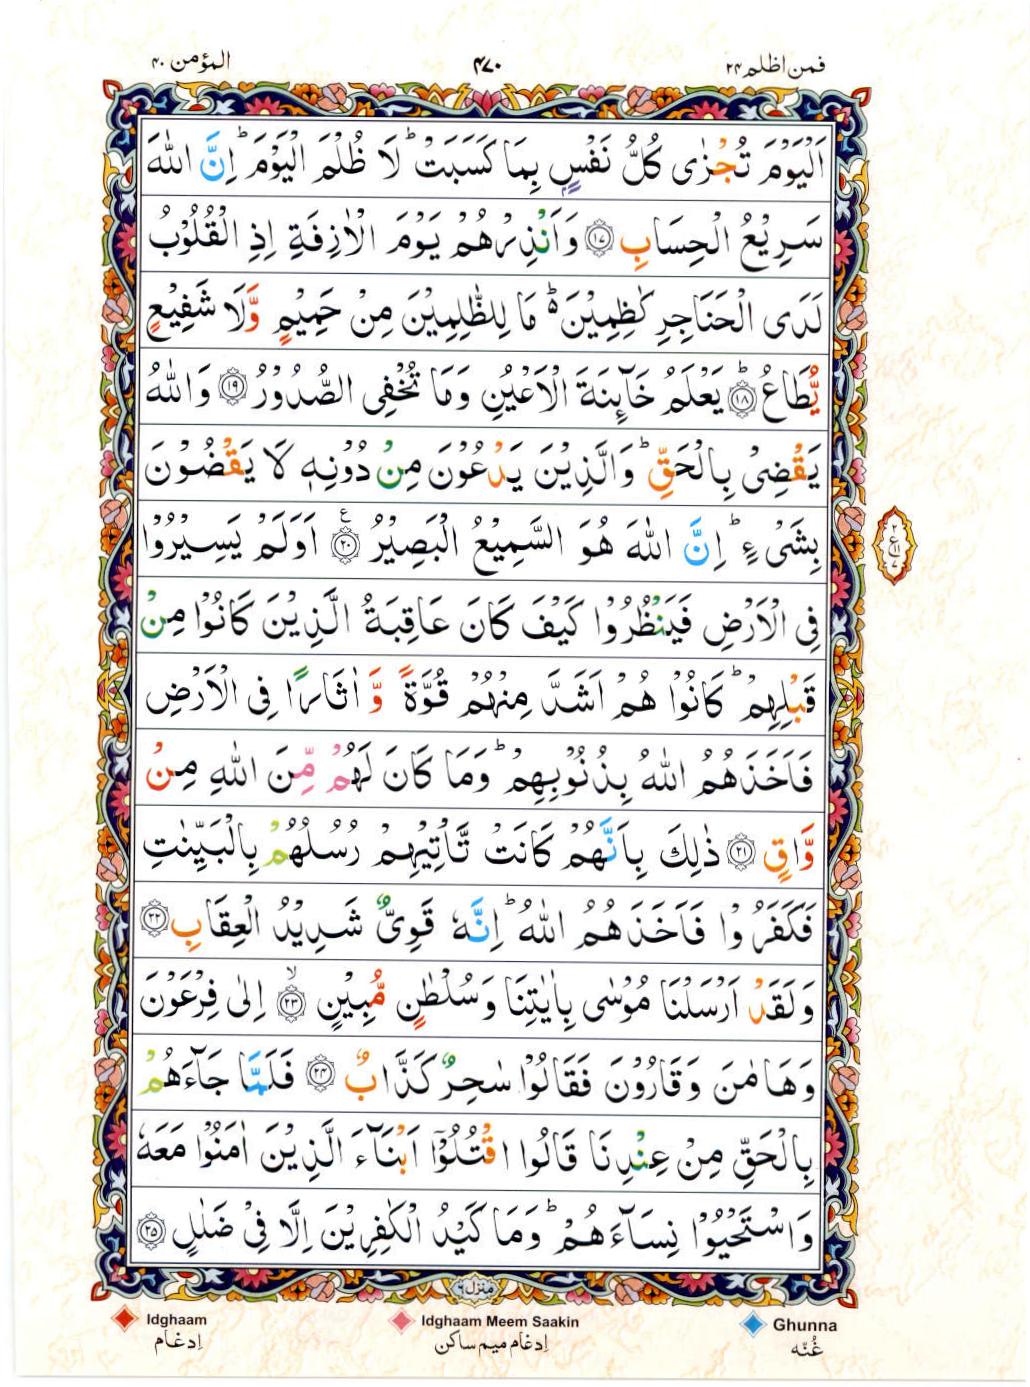 المؤمن ۴۰
۴۷۰
فمن اظلم ۲۴
اَلْيَوْمَ تُجْزٰى كُلُّ نَفْسٍۭ بِمَا كَسَبَتْ ؕ لَا ظُلْمَ الْيَوْمَ ؕ اِنَّ اللّٰهَ
سَرِيْعُ الْحِسَابِ ۝۱۷ وَاَنْذِرْهُمْ يَوْمَ الْاٰزِفَةِ اِذِ الْقُلُوْبُ
لَدَى الْحَنَاجِرِ كٰظِمِيْنَ ۬ؕ مَا لِلظّٰلِمِيْنَ مِنْ حَمِيْمٍ وَّلَا شَفِيْعٍ
يُّطَاعُ ؕ۝۱۸ يَعْلَمُ خَآئِنَةَ الْاَعْيُنِ وَمَا تُخْفِى الصُّدُوْرُ ۝۱۹ وَاللّٰهُ
يَقْضِىْ بِالْحَقِّ ؕ وَالَّذِيْنَ يَدْعُوْنَ مِنْ دُوْنِهٖ لَا يَقْضُوْنَ
بِشَىْءٍ ؕ اِنَّ اللّٰهَ هُوَ السَّمِيْعُ الْبَصِيْرُ ۝۲۰ ع اَوَلَمْ يَسِيْرُوْا
فِى الْاَرْضِ فَيَنْظُرُوْا كَيْفَ كَانَ عَاقِبَةُ الَّذِيْنَ كَانُوْا مِنْ
قَبْلِهِمْ ؕ كَانُوْا هُمْ اَشَدَّ مِنْهُمْ قُوَّةً وَّ اٰثَارًا فِى الْاَرْضِ
فَاَخَذَهُمُ اللّٰهُ بِذُنُوْبِهِمْ ؕ وَمَا كَانَ لَهُمْ مِّنَ اللّٰهِ مِنْ
وَّاقٍ ۝۲۱ ذٰلِكَ بِاَنَّهُمْ كَانَتْ تَّاْتِيْهِمْ رُسُلُهُمْ بِالْبَيِّنٰتِ
فَكَفَرُوْا فَاَخَذَهُمُ اللّٰهُ ؕ اِنَّهٗ قَوِىٌّ شَدِيْدُ الْعِقَابِ ۝۲۲
وَلَقَدْ اَرْسَلْنَا مُوْسٰى بِاٰيٰتِنَا وَسُلْطٰنٍ مُّبِيْنٍ ۙ۝۲۳ اِلٰى فِرْعَوْنَ
وَهَامٰنَ وَقَارُوْنَ فَقَالُوْا سٰحِرٌ كَذَّابٌ ۝۲۴ فَلَمَّا جَآءَهُمْ
بِالْحَقِّ مِنْ عِنْدِنَا قَالُوا اقْتُلُوْۤا اَبْنَآءَ الَّذِيْنَ اٰمَنُوْا مَعَهٗ
وَاسْتَحْيُوْا نِسَآءَهُمْ ؕ وَمَا كَيْدُ الْكٰفِرِيْنَ اِلَّا فِىْ ضَلٰلٍ ۝۲۵
۲
ع ۱۱
۷
منزل ۶
Idghaam
اِدغَام
Idghaam Meem Saakin
اِدغَام مِيم سَاكن
Ghunna
غُنّه